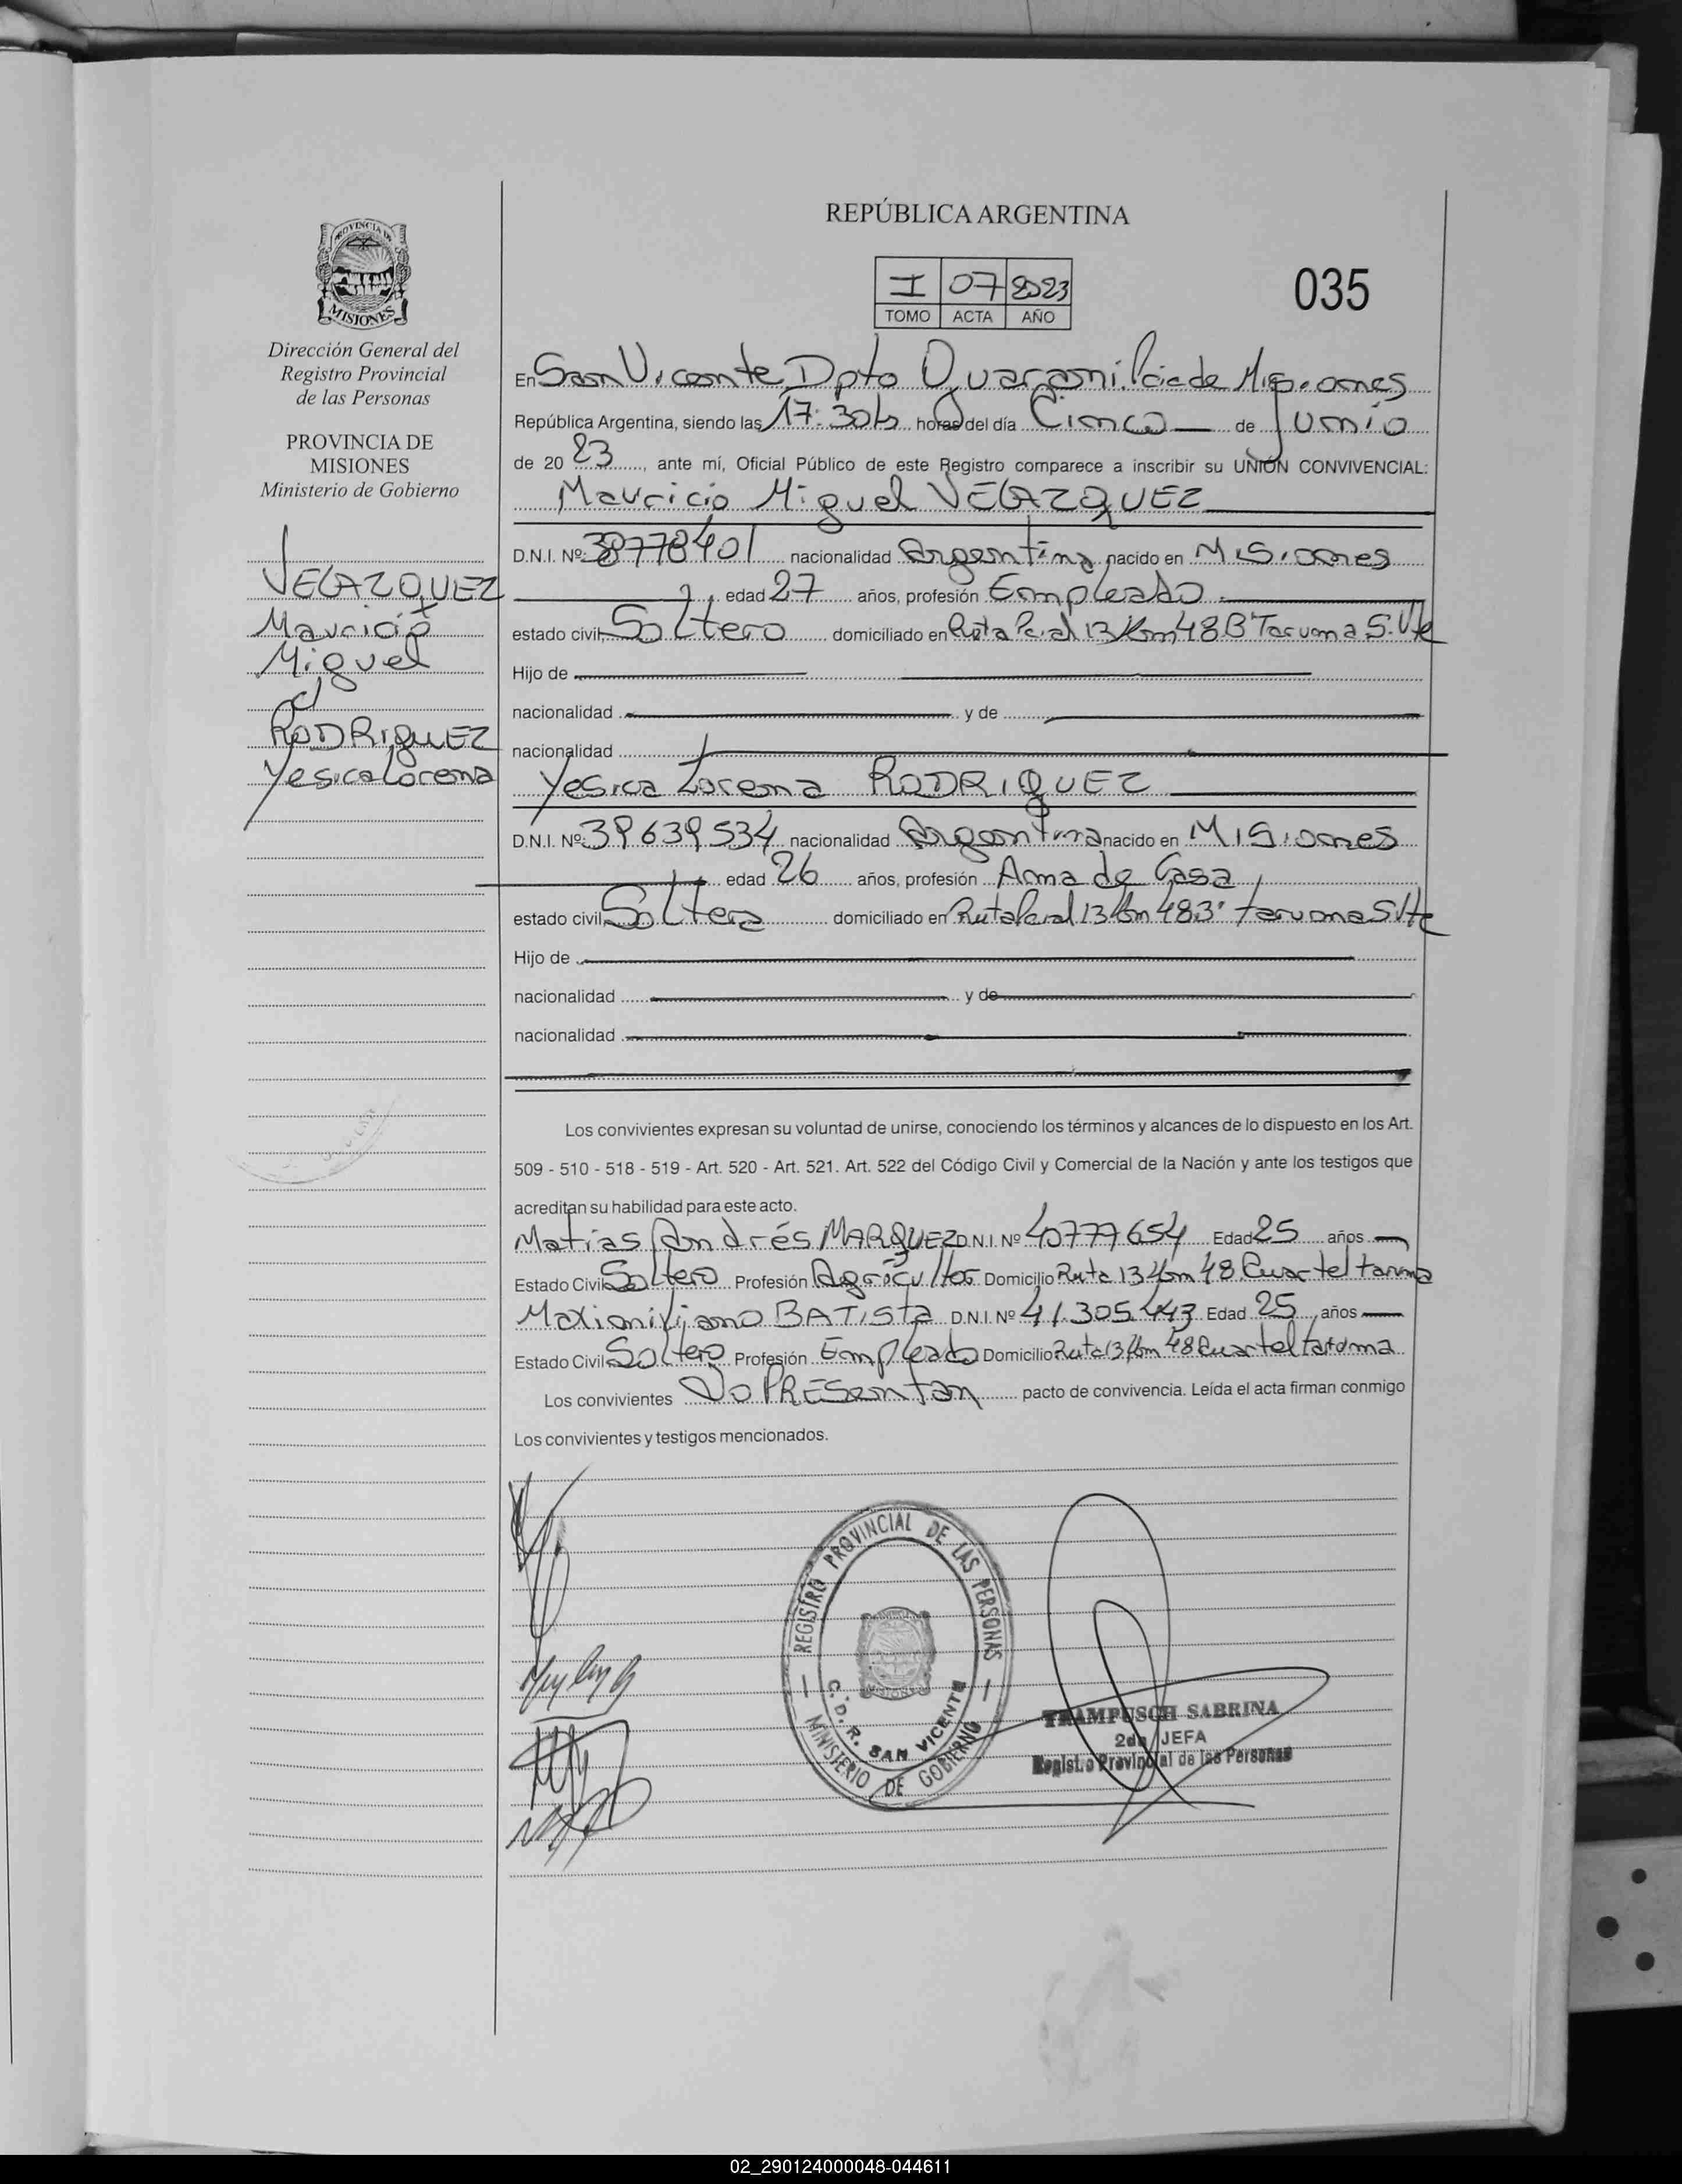 REPÚBLICA ARGENTINA
I 07 2023
TOMO ACTA AÑO
035
PROVINCIA DE
MISIONES
Dirección General del
Registro Provincial
de las Personas
PROVINCIA DE
MISIONES
Ministerio de Gobierno
VELAZQUEZ
Mauricio
Miguel
c/
RODRIGUEZ
Yesica Lorena
En San Vicente Dpto Guarani. Pcia de Misiones
República Argentina, siendo las 17:30 hs horas del día Cinco de Junio
de 20 23, ante mí, Oficial Público de este Registro comparece a inscribir su UNIÓN CONVIVENCIAL:
Mauricio Miguel VELAZQUEZ
D.N.I. Nº: 38778401 nacionalidad Argentina nacido en Misiones
edad 27 años, profesión Empleado
estado civil, Soltero domiciliado en Ruta Pcial 13 Km 48 B° Taruma S. Vte
Hijo de
nacionalidad y de
nacionalidad
Yesica Lorena RODRIGUEZ
D.N.I. Nº: 39639534 nacionalidad Argentina nacido en Misiones
edad 26 años, profesión Ama de Casa
estado civil, Soltera domiciliado en Ruta Pcial 13 Km 48 B° taruma S. Vte
Hijo de
nacionalidad y de
nacionalidad
Los convivientes expresan su voluntad de unirse, conociendo los términos y alcances de lo dispuesto en los Art.
509 - 510 - 518 - 519 - Art. 520 - Art. 521. Art. 522 del Código Civil y Comercial de la Nación y ante los testigos que
acreditan su habilidad para este acto.
Matias Andrés MARQUEZ D.N.I. Nº 40777654 Edad 25 años
Estado Civil Soltero Profesión Agricultor Domicilio Ruta 13 Km 48 Cuartel taruma
Maximiliano BATISta D.N.I. Nº 41.305.443 Edad 25 años
Estado Civil Soltero Profesión Empleado Domicilio Ruta 13 Km 48 Cuartel taruma
Los convivientes No PRESentan pacto de convivencia. Leída el acta firman conmigo
Los convivientes y testigos mencionados.
REGISTRO PROVINCIAL DE LAS PERSONAS
C.D.R. SAN VICENTE
MINISTERIO DE GOBIERNO
TRAMPUSCH SABRINA
2da JEFA
Registro Provincial de las Personas
02_290124000048-044611